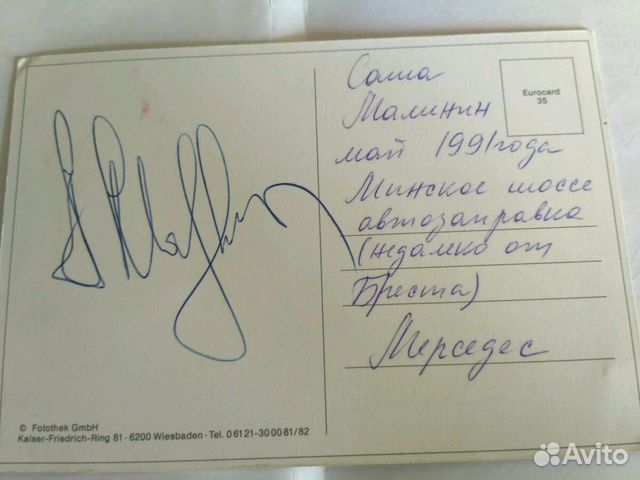 Саша
Малинин
май 1991года
Минское шоссе
автозаправка
(недалеко от
Бреста)
Мерседес
Eurocard
35
© Fotothek GmbH
Kaiser-Friedrich-Ring 81 · 6200 Wiesbaden · Tel. 06121-300081/82
Avito